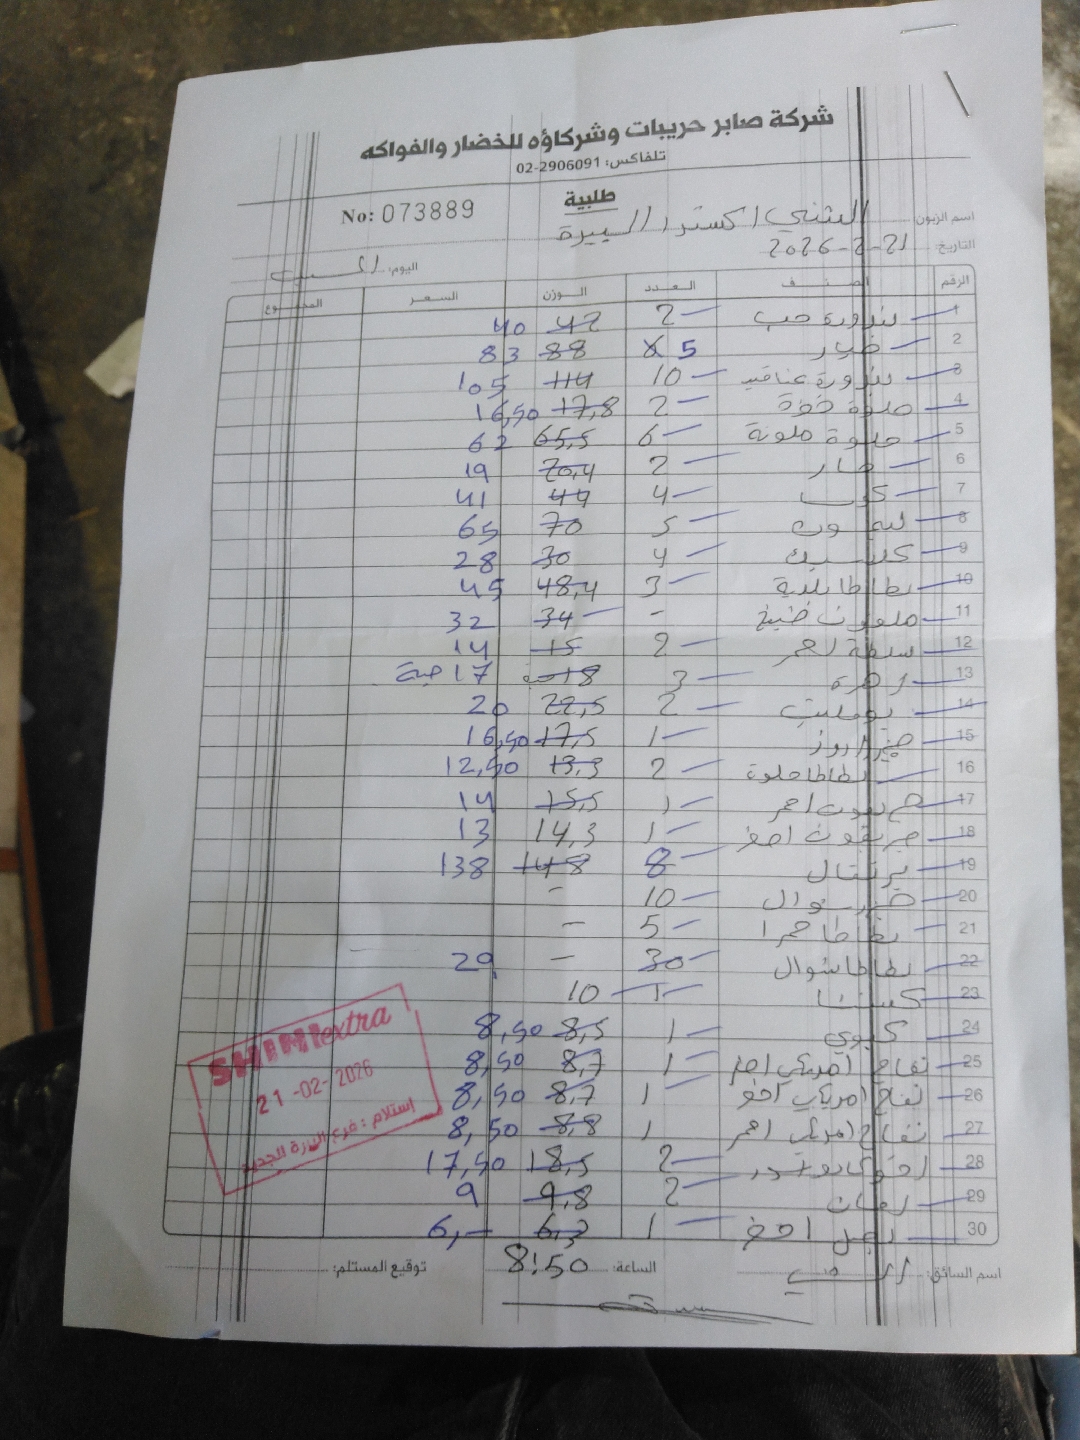 شركة صابر حريبات وشركاؤه للخضار والفواكه
تلفاكس: 02-2906091
طلبية
No: 073889
اسم الزبون: الشني اكسترا البيرة
التاريخ: 21-2-2026
اليوم: السبت
الرقم الصنف العدد الوزن السعر المجموع
1 بندورة حب 2 42 40
2 خيار 5 88 83
3 بندورة عناقيد 10 114 105
4 حلوة خضرة 2 17,8 16,50
5 حلوة ملونة 6 65,5 62
6 حار 2 20,4 19
7 كوسا 4 44 41
8 ليمون 5 70 65
9 كلاسيك 4 30 28
10 بطاطا بلدية 3 48,4 45
11 ملفوف - 34 32
12 2 15 14
13 زهرة 3 18 حبة 17 حبة
14 بوملي 2 22,5 20
15 1 17,5 16,50
16 بطاطا حلوة 2 13,3 12,50
17 احمر 1 15,5 14
18 اصفر 1 14,3 13
19 برتقال 8 148 138
20 شوال 10 -
21 بطاطا حمرا 5 -
22 بطاطا شوال 30 - 29
23 كستنا 1 10
24 كيوي 1 8,5 8,50
25 تفاح امريكي 1 8,7 8,50
26 تفاح امريكي اخضر 1 8,7 8,50
27 تفاح امريكي احمر 1 8,8 8,50
28 افوكادو 2 18,5 17,50
29 رمان 2 9,8 9
30 بصل اخضر 1 6,3 6,-
SHINI extra
21-02-2026
إستلام: فرع البيرة الجديد
اسم السائق:
الساعة: 8:50
توقيع المستلم: